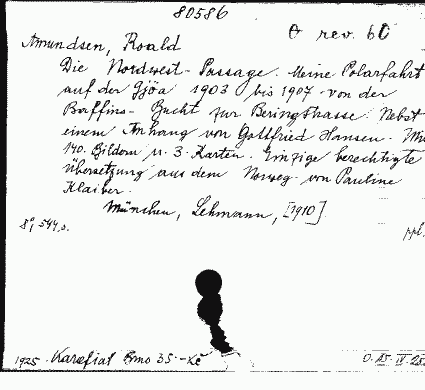 80586
O rev. 60
Amundsen, Roald
Die Nordwest-Passage. Meine Polarfahrt
auf der Gjöa 1903 bis 1907 von der
Baffins-Bucht zur Beringstrasse. Nebst
einem Anhang von Gottfried Hansen. Mit
140. Bildern u. 3. Karten. Einzige berechtigte
Übersetzung aus dem Norweg. von Pauline
Klaiber.
München, Lehmann, [1910].
8°, 544, s.
ppl.
1925. Karafiat Brno 35.-Kč